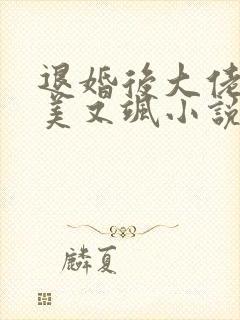 退婚後大佬
美又颯小說
麟夏